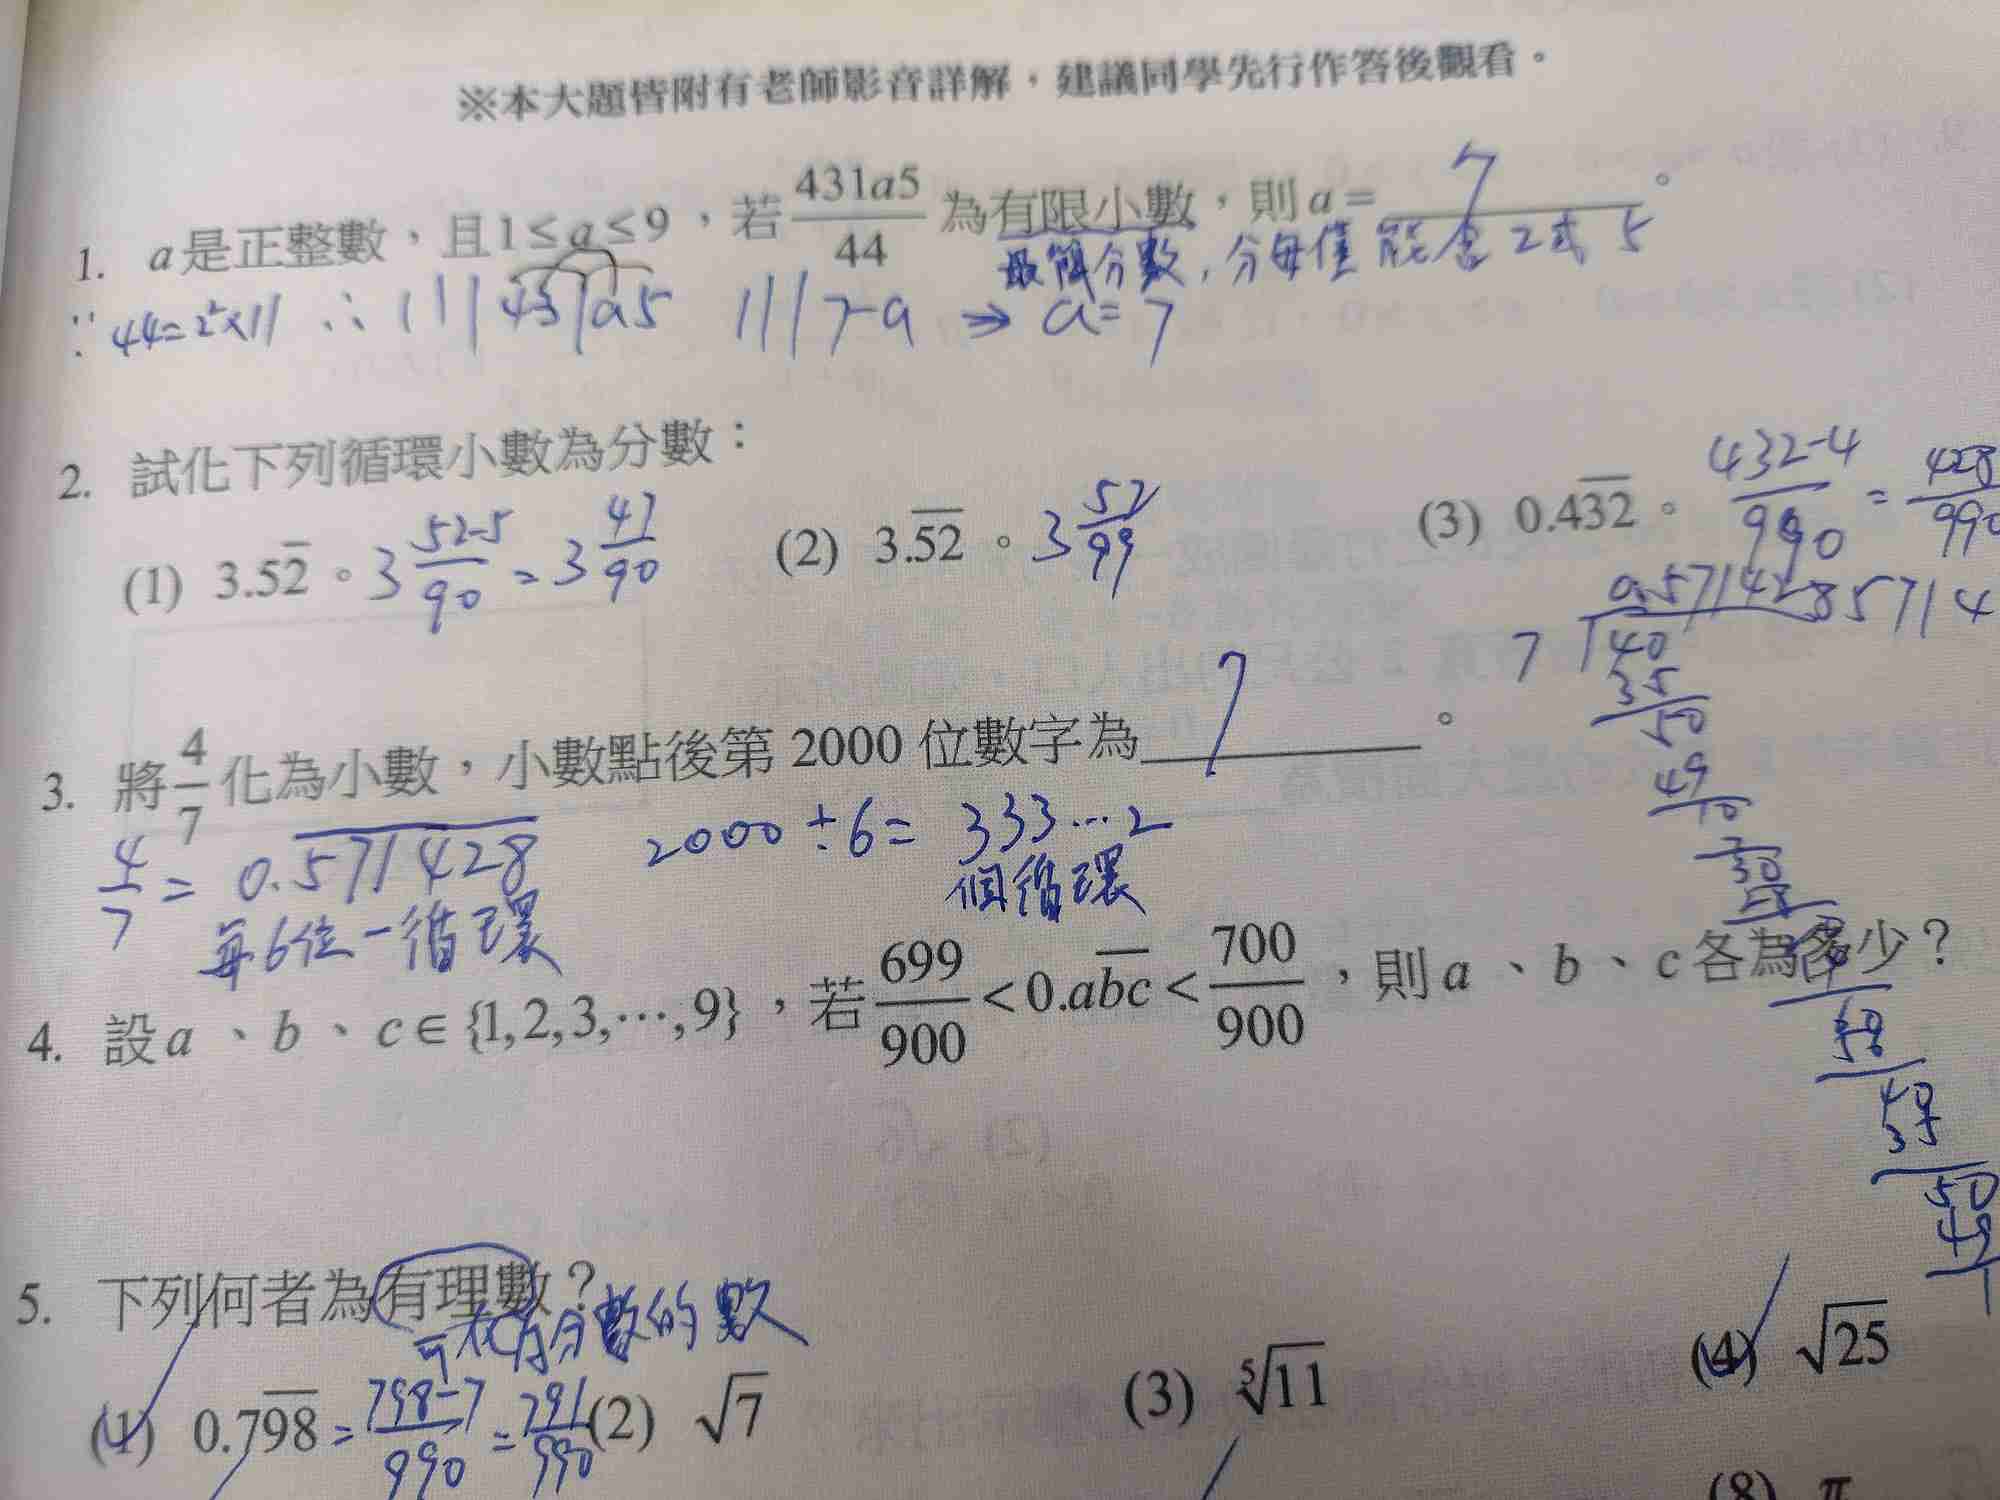 ※本大題皆附有老師影音詳解，建議同學先行作答後觀看。
1. a是正整數，且1≤a≤9，若431a5/44為有限小數，則a=7。
最簡分數，分母僅能含2或5
∵44=2²×11 ∴11|431a5 11|7-a ⇒ a=7
2. 試化下列循環小數為分數：
(1) 3.52̅。3 52-5/90 = 3 47/90 (2) 3.5̅2̅。3 52/99 (3) 0.43̅2̅。432-4/990 = 428/990
0.5714285714
7 40
35
50
49
10
7
30
28
3. 將4/7化為小數，小數點後第 2000 位數字為7。
4/7 = 0.5̅7̅1̅4̅2̅8̅ 2000÷6=333…2
每6位一循環 個循環
4. 設a、b、c∈{1,2,3,⋯,9}，若699/900<0.ab̅c̅<700/900，則a、b、c各為多少？
40
35
50
49
1
5. 下列何者為有理數？
可化為分數的數
(1) 0.79̅8̅ = 798-7/990 = 791/990 (2) √7 (3) ⁵√11 (4) √25
(8) π